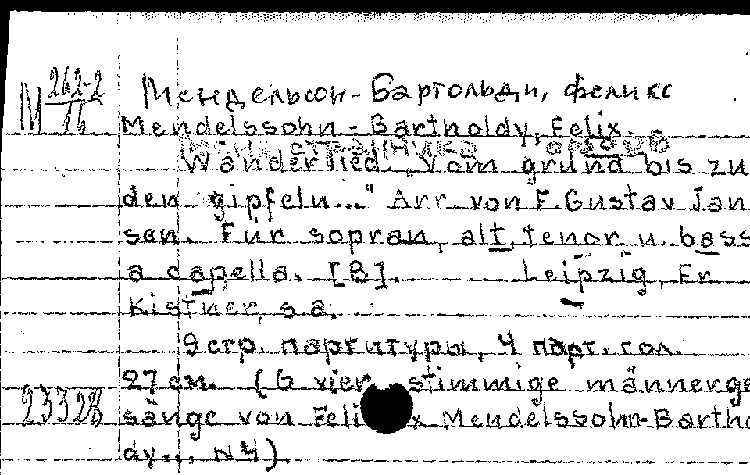 М 262-2
16
Мендельсон-Бартольди, Феликс
Mendelssohn-Bartholdy, Felix.
Wanderlied. "Vom grund bis zu
den gipfeln..." Arr. von F. Gustav Jan
sen. Für sopran, alt, tenor u. bass
a capella. [B]. Leipzig, Fr.
Kistner, s.a.
9 стр. партитуры, 4 парт. гол.
27 см. (6 vierstimmige männerge
23328
sänge von Felix Mendelssohn-Bartho
dy... N4).